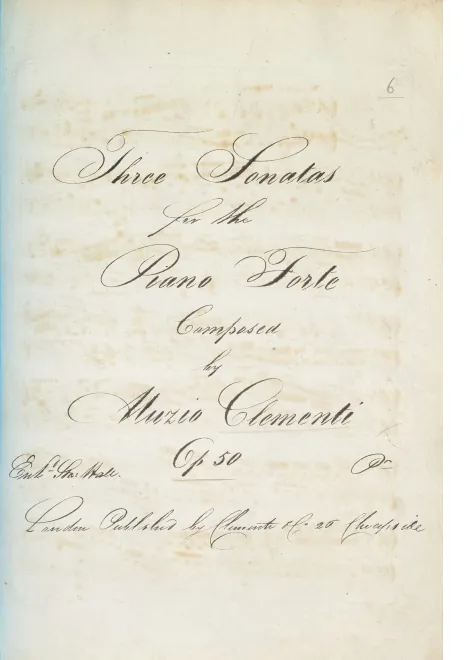 6
Three Sonatas
for the
Piano Forte
Composed
by
Muzio Clementi
Op 50
Entd. Sta. Hall. Pr
London Published by Clementi & Co. 26 Cheapside